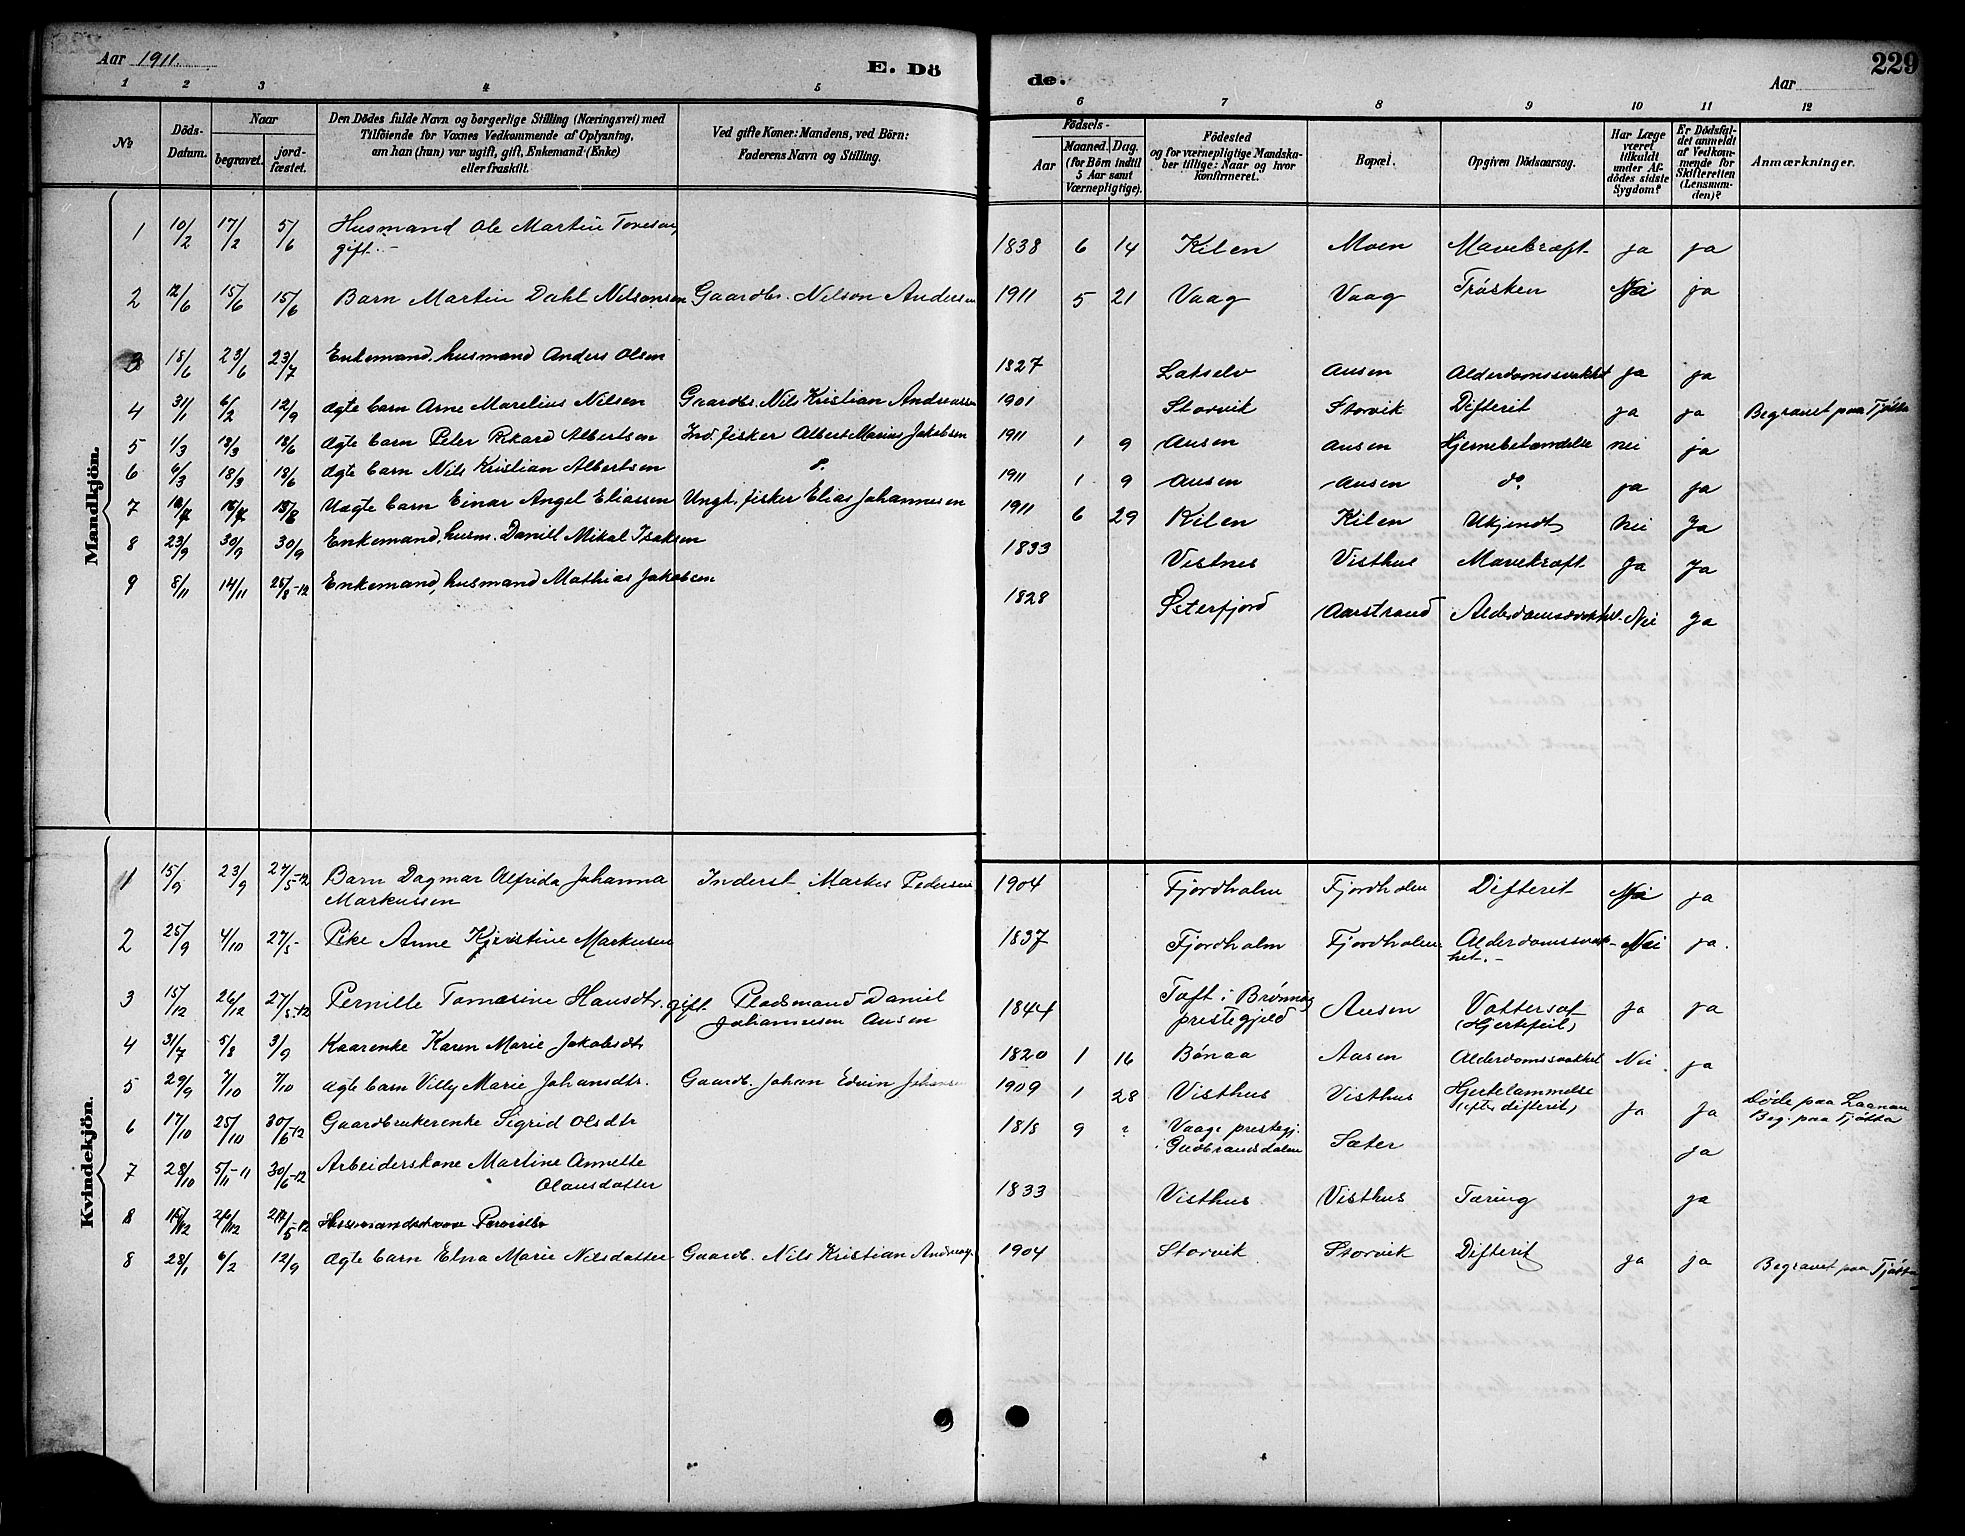 Aar 1911.
E. Dö
de.
Aar
229
1 2 3 4 5 6 7 8 9 10 11 12
No
Döds-Datum.
Naar
begravet.
jordfæstet.
Den Dödes fulde Navn og borgerlige Stilling (Næringsvei) med
Tilföiende for Voxnes Vedkommende af Oplysning,
om han (hun) var ugift, gift, Enkemand (Enke)
eller fraskilt.
Ved gifte Koner: Mandens, ved Börn:
Faderens Navn og Stilling.
Födsels-
Aar
Maaned. Dag.
(for Börn indtil
5 Aar samt
Værnepligtige).
Födested
og for værnepligtige Mandska-
ber tillige: Naar og hvor
konfirmeret.
Bopæl.
Opgiven Dödsaarsag.
Har Læge
været
tilkaldt
under Af-
dödes sidste
Sygdom?
Er Dödsfal-
det anmeldt
af Vedkom-
mende for
Skifteretten
(Lensman-
den)?
Anmærkninger.
Mandkjön.
1 10/2 17/2 5/6 Husmand Ole Martin Toresen, gift.- 1838 6 14 Kilen Moen Mavekræft ja ja
2 12/6 15/6 15/6 Barn Martin Dahl Nilsonsen Gaardbr. Nilson Andersen 1911 5 21 Vaag Vaag Trøsken ja
3 18/6 23/6 23/7 Enkemand, husmand Anders Olsen 1827 Lakselv Ausen Alderdomssvakhet ja ja
4 31/1 6/2 12/9 Ægte barn Arne Marelius Nilsen Gaardbr. Nils Kristian Andreassen 1901 Storvik Storvik Difterit ja ja Begravet paa Tjøtta
5 1/3 18/3 18/6 Ægte barn Peter Rikard Albertsen Ind. fisker Albert Marius Jakobsen 1911 1 9 Ausen Ausen Hjernebetændelse nei ja
6 6/3 18/3 18/6 Ægte barn Nils Kristian Albertsen 1911 1 9 Ausen Ausen do ja ja
7 Uægte barn Einar Angel Eliassen Ungk. fisker Elias Johannesen 1911 6 29 Kilen Kilen Ukjendt Nei Ja
8 23/9 30/9 30/9 Enkemand, husm. Daniel Mikal Isaksen 1833 Vistnes Visthus Mavekræft Ja Ja
9 8/11 14/11 25/8-12 Enkemand, husmand Mathias Jakobsen 1828 Østerfjord Aarstrand Alderdomssvakhet Nei Ja
Kvindekjön.
1 15/9 23/9 27/5-12 Barn Dagmar Alfrida Johanna Markussen Inderst Markus Pedersen 1904 Fjordholm Fjordholm Difterit ja
2 25/9 4/10 27/5- Pike Anne Kjerstine Markusen 1837 Fjordholm Fjordholm Alderdomssvakhet.- Nei ja.
3 15/12 26/12 27/5-12 Pernille Tomasine Hansdtr. gift Pladsmand Daniel Johannesen Ausen 1844 Toft i Brønnøy prestegjeld Ausen Vattersot (Hjertefeil) ja ja
4 31/7 5/8 3/9 Kaarenke Karen Marie Jakobsdtr 1820 1 16 Bønaa Aasen Alderdomssvakhet Nei. ja
5 29/9 7/10 7/10 Ægte barn Villy Marie Johansdtr. Gaardb. Johan Edvin Johansen 1909 1 28 Visthus Visthus Hjertelammelse (efter difterit) Ja Ja Døde paa Laanan Beg. paa Tjøtta
6 17/10 25/10 30/6-12 Gaardbrukerenke Sigrid Olsdtr 1818 9 ? Vaage prestegj. i Gudbrandsdalen Sæter ja
7 28/10 5/11-11 30/6-12 Arbeiderskone Martine Annette Olausdatter 1833 Visthus Visthus Tæring ja
8 15/12 26/12 27/5-12 Husmandskone Pernille
8 28/1 6/2 12/9 Ægte barn Elna Marie Nilsdatter Gaardb. Nils Kristian Andreas. 1904 Storvik Storvik Difterit ja ja Begravet paa Tjøtta